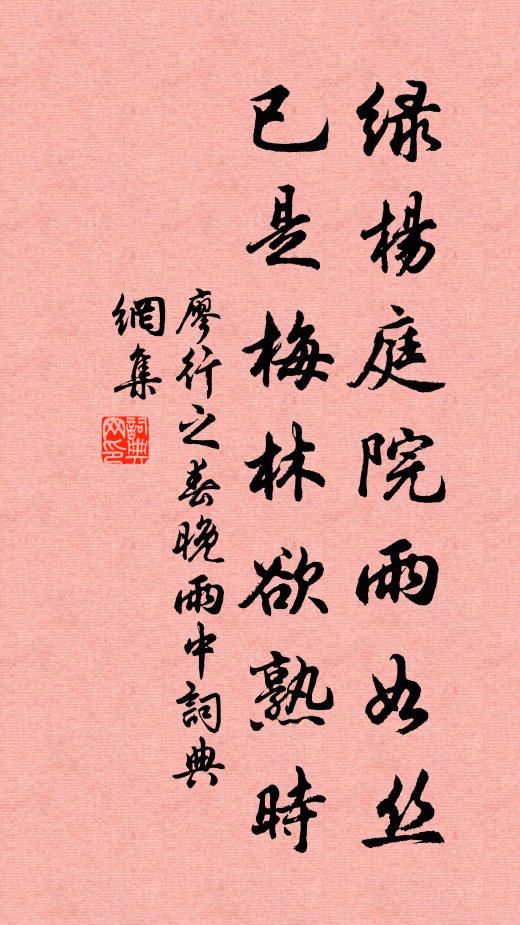 绿楊庭院雨如丝
已是梅林欲熟時
廖行之春晚雨中詞典
網集
詞典网印